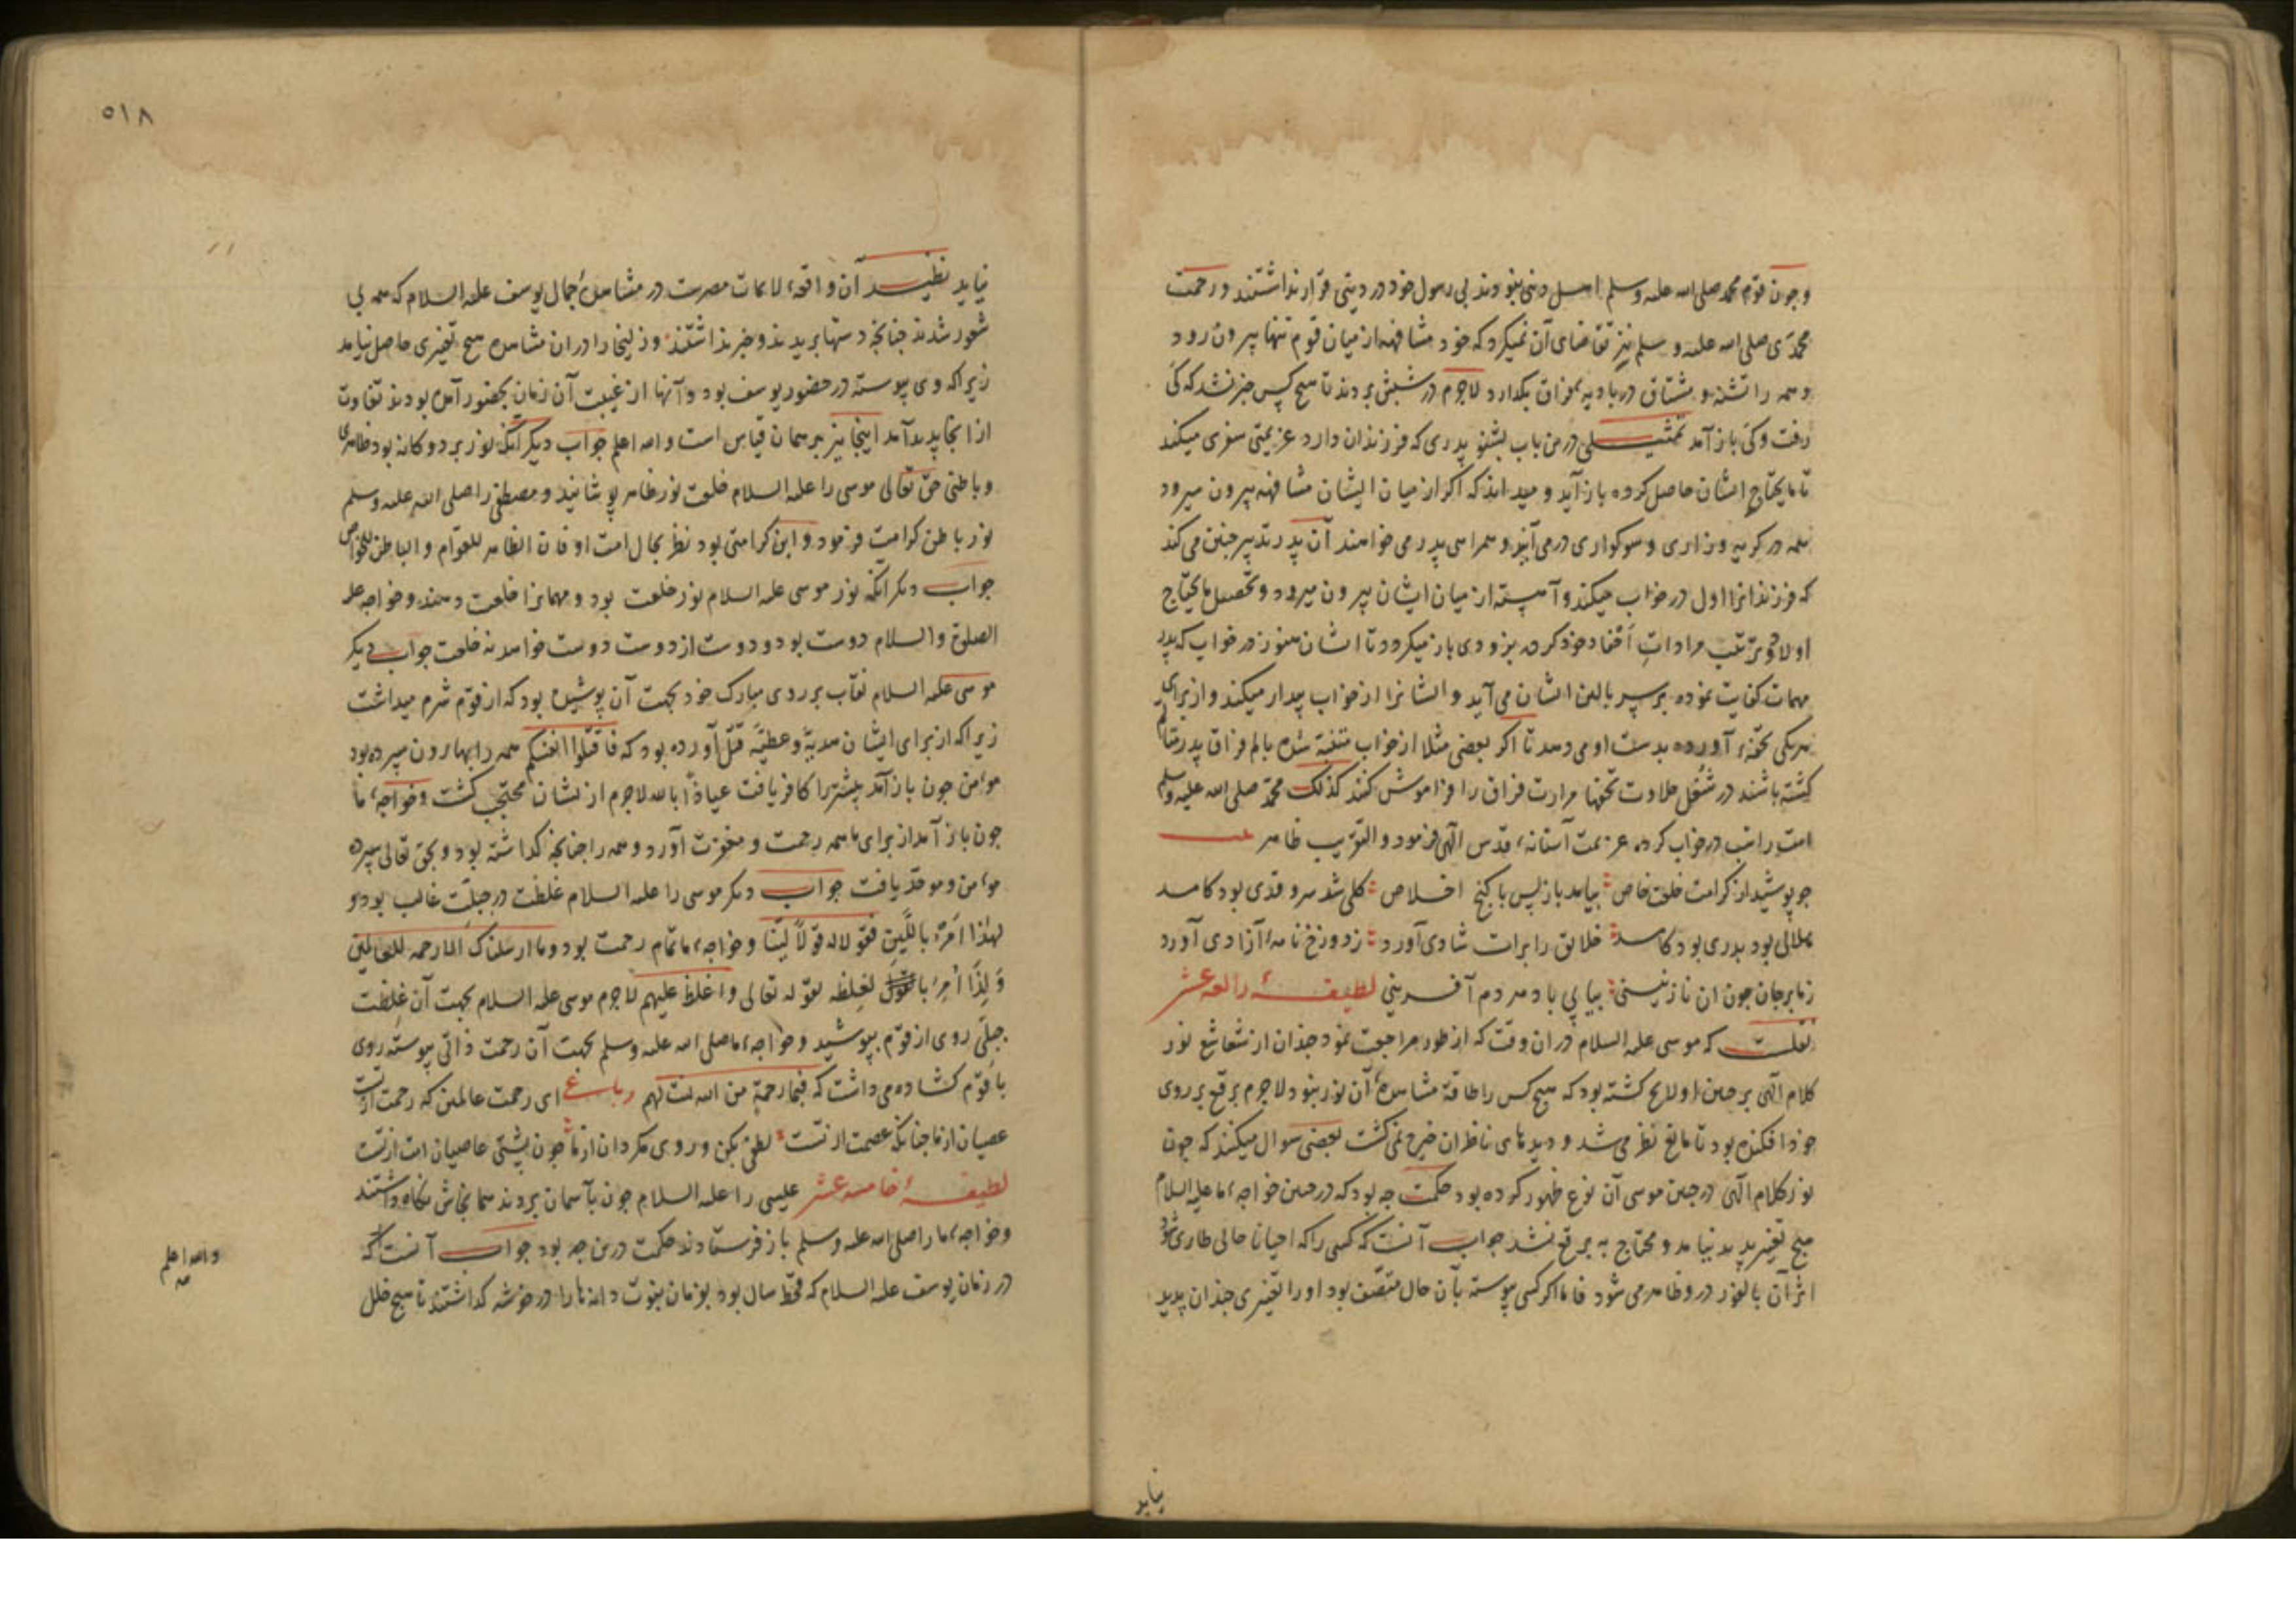 وچون قوم محمد صلی الله علیه وسلم اهل دنیی نبودند بی رسول خود در دینی قرار نداشتند و رحمت
محمدی صلی الله علیه و سلم نیز تقاضای آن نمیکرد که خود مشافهه از میان قوم تنها بیرون رود
و همه را تشنه و مشتاق در بادیهٔ فراق بگذارد لاجرم در شبش بردند تا هیچ کس خبر نشد که کی
رفت و کی باز آمد تمثیلی درین باب بشنو پدری که فرزندان دارد عزیمتی سفری میکند
تا مایحتاج ایشان حاصل کرده باز آید و میداند که اگر از میان ایشان مشافهه بیرون میرود
همه در کریه و زاری و سوکواری درمی آیند و همراهی پدر می خواهند آن پدر تدبیر چنین می کند
که فرزندانرا اول در خواب میکند و آهسته از میان ایشان بیرون میرود و تحصیل مایحتاج
اولاد و ترتیب مرادات خود کرده بزودی باز میکردد تا ایشان هنوز در خواب که پدر
مهمات کفایت نموده بر سر بالین ایشان می آید و ایشانرا از خواب بیدار میکند و از برای
هریکی تحفهٔ آورده بدست او می دهد تا اکر بعضی مثلا از خواب متنبه شده بالم فراق پدر
کشته باشند در شغل حلاوت تحفها مرارت فراق را فراموش کنند کذلک محمد صلی الله علیه وسلم
امت را شب در خواب کرده عزیمت آستانهٔ قدس الهی فرمود و التقریب ظاهر
چو پوشید از کرامت خلعت خاص بیامد باز پس با کنج اخلاص کلی شد سرو قدی بود کامد
هلالی بود بدری بود کامد خلایق را برات شادی آورد ز دوزخ نامهٔ آزادی آورد
زما بر جان چون ان نازنینی بیاپی باد مردم آفرینی لطیفهٔ رابعه عشر
نقلست که موسی علیه السلام در ان وقت که از طور مراجعت نمود چندان از شعاشع نور
کلام الهی بر جبین او لایح کشته بود که هیچ کس را طاقة مشاهدهٔ آن نور نبود لاجرم برقع بر روی
خود افکنده بود تا مانع نظر می شد و دیدهای ناظران خیره نمی کشت بعضی سوال میکنند که چون
نور کلام الهی در جبین موسی آن نوع ظهور کرده بود حکمت چه بود که در جبین خواجهٔ ما علیه السلام
هیچ تغییر پدید نیامد و محتاج به برقع نشد جواب آنست که کسی را که احیانا حالی طاری شود
اثر آن بالفور در و ظاهر می شود فاما اکر کسی پیوسته بآن حال متصف بود او را تغییری چندان پدید
نیاید
۵۱۸
نیاید نظیر آن واقعهٔ لایمات مصرست در مشاهدهٔ جمال یوسف علیه السلام که همه بی
شعور شدند چنانچه دستها بریدند و خبر نداشتند و زلیخا را در ان مشاهده هیچ تغییری حاصل نیامد
زیرا که وی پیوسته در حضور یوسف بود و آنها از غیبت آن زمان بحضور آمده بودند تفاوت
از انجا پدید آمد اینجا نیز بر همان قیاس است والله اعلم جواب دیکر آنکه نور بر دو کانه بود ظاهری
و باطنی حق تعالی موسی را علیه السلام خلعت نور ظاهر پوشانید و مصطفی را صلی الله علیه وسلم
نور باطن کرامت فرمود و این کرامتی بود نظر بحال امت او فان الظاهر للعوام والباطن للخواص
جواب دیکر آنکه نور موسی علیه السلام نور خلعت بود و مهمانرا خلعت دهند و خواجه علیه
الصلوة والسلام دوست بود و دوست از دوست دوست خواهد نه خلعت جواب دیکر
موسی علیه السلام نقاب بر روی مبارک خود بجهت آن پوشیده بود که از قوم شرم میداشت
زیرا که از برای ایشان هدیهٔ و عطیهٔ قتل آورده بود که فاقتلوا انفسکم همه را بهارون سپرده بود
مؤمن چون باز آمد بیشتر را کافر یافت عیاذا بالله لاجرم از ایشان محتجب کشت و خواجهٔ ما
چون باز آمد از برای ما همه رحمت و مغفرت آورد و همه را چنانچه کذاشته بود و بحق تعالی سپرده
مؤمن و موحد یافت جواب دیکر موسی را علیه السلام غلظت در جبلت غالب بود و
لهذا امره باللین فقولا له قولا لینا و خواجهٔ ما تمام رحمت بود وما ارسلناک الا رحمة للعالمین
ولذا امر بالغلظه لقوله تعالی واغلظ علیهم لاجرم موسی علیه السلام بجهت آن غلظت
جبلی روی از قوم بپوشید و خواجهٔ ما صلی الله علیه وسلم بجهت آن رحمت ذاتی پیوسته روی
با قوم کشاده می داشت که فبما رحمة من الله لنت لهم رباعی ای رحمت عالمین که رحمت از تست
عصیان از ما چنانکه عصمت از تست لطفی بکن و روی مکردان از ما چون پشتی عاصیان امت از تست
لطیفهٔ خامسه عشر عیسی را علیه السلام چون بآسمان بردند همانجاش نکاه داشتند
و خواجهٔ ما را صلی الله علیه وسلم باز فرستادند حکمت درین چه بود جواب آنست که
در زمان یوسف علیه السلام که قحط سال بود بفرمان نبوت دانها را در خوشه کذاشتند تا هیچ خلل
والله اعلم